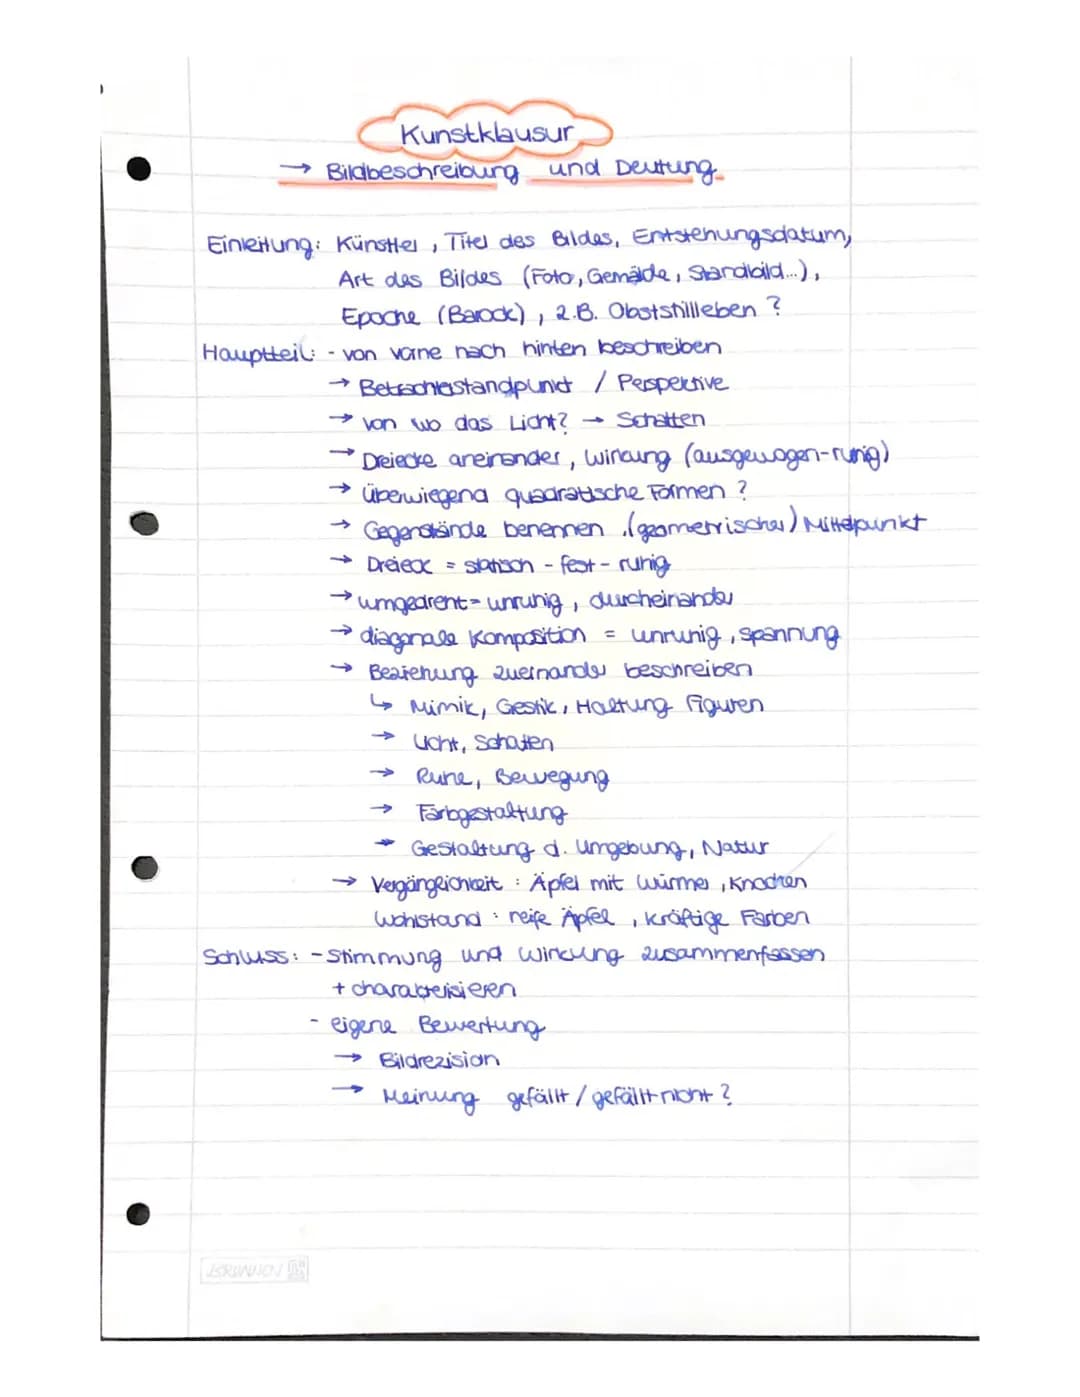 Kunstklausur
→ Bildbeschreibung und Deutung
Einleitung: Künstler, Titel des Bildes, Entstehungsdatum,
Art des Bildes (Foto, Gemälde, Standbild...),
Epoche (Barock), z.B. Obststillleben?
Hauptteil: - von vorne nach hinten beschreiben
→ Betrachterstandpunkt / Perspektive
→ von wo das Licht? → Schatten
→ Dreiecke aneinander, wirkung (ausgewogen-ruhig)
→ überwiegend quadratische Formen?
→ Gegenstände benennen (geometrischer) Mittelpunkt
→ Dreieck = statisch - fest - ruhig
→ umgedreht = unruhig, durcheinander
→ diagonale Komposition = unruhig, spannung
→ Beziehung zueinander beschreiben
↳ Mimik, Gestik, Haltung Figuren
→ Licht, Schatten
→ Ruhe, Bewegung
→ Farbgestaltung
→ Gestaltung d. Umgebung, Natur
→ Vergänglichkeit : Äpfel mit Würmer, Knochen
Wohlstand : reife Äpfel, kräftige Farben
Schluss: - Stimmung und wirkung zusammenfassen
+ charakterisieren
- eigene Bewertung
→ Bildrezision
→ Meinung gefällt / gefällt nicht?
BRUNNEN